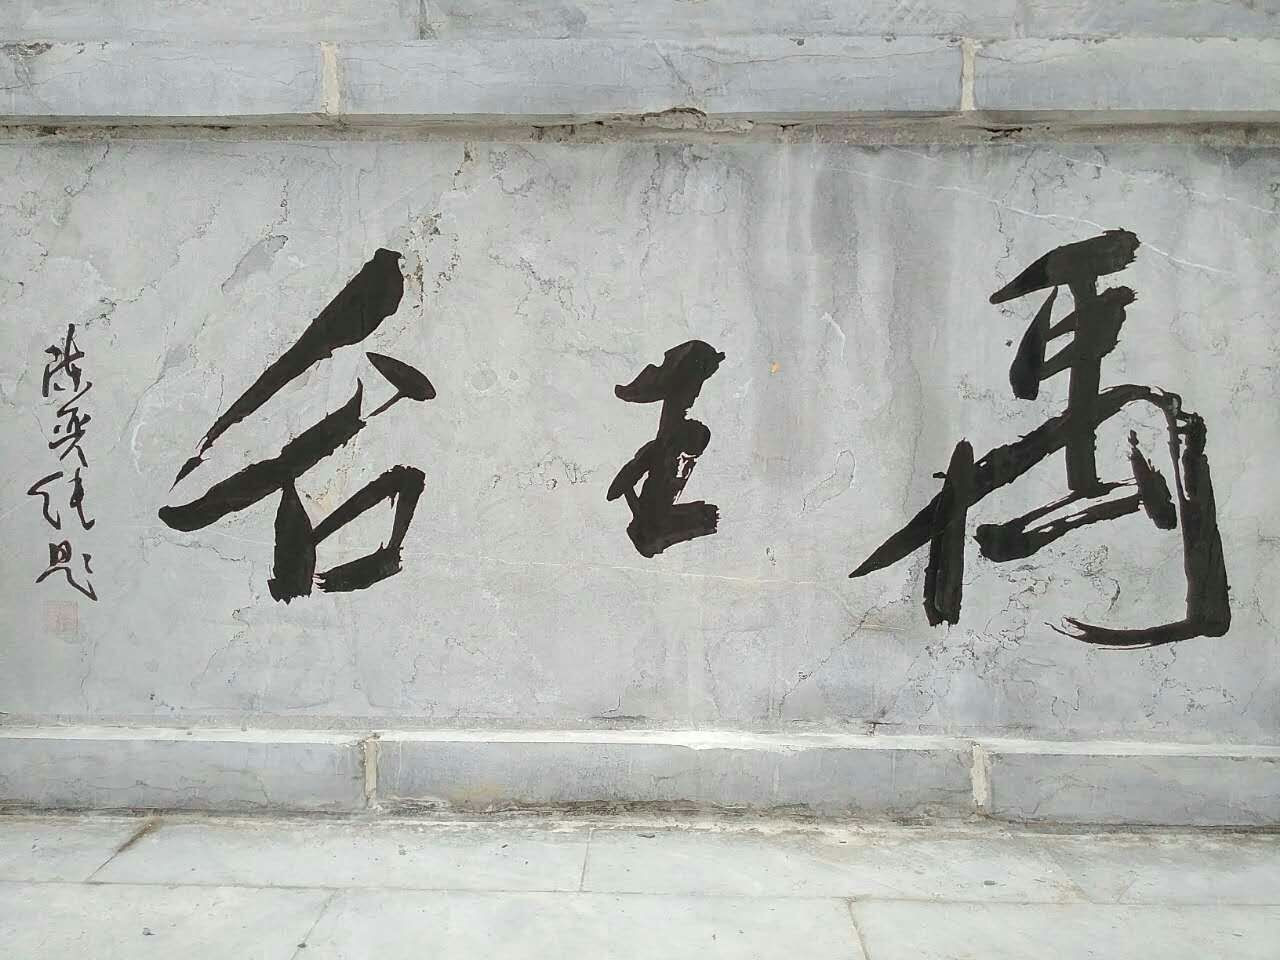 禹王台
陈奕纯题